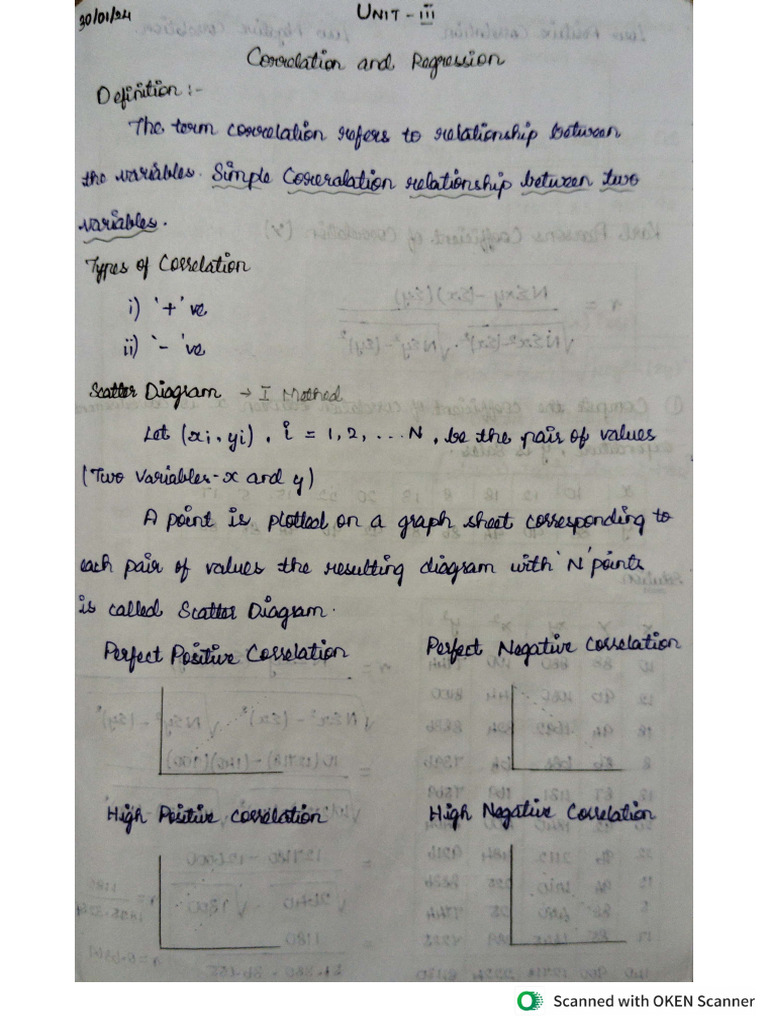 30/01/24
UNIT - III
Correlation and Regression
Definition :-
The term correlation refers to relationship between
the variables. Simple Coreralation relationship between two
variables.
Types of Correlation
i) '+' ve
ii) '-' ve
Scatter Diagram → I Method
Let (xi, yi), i = 1, 2, ... N, be the pair of values
(Two variables - x and y)
A point is plotted on a graph sheet corresponding to
each pair of values the resulting diagram with 'N' points
is called Scatter Diagram.
Perfect Positive Correlation Perfect Negative Correlation
High Positive correlation High Negative Correlation
Scanned with OKEN Scanner